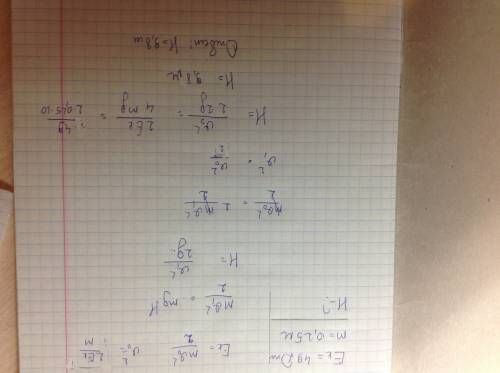 Eₖ = 49 Дж
m = 0,25 кг
H - ?
Eₖ = mv₀²/2 v₀² = 2Eₖ/m
mv₁²/2 = mgH
H = v₁²/2g
mv₀²/2 = 2 mv₁²/2
v₁² = v₀²/2
H = v₀²/2·2g = 2Eₖ/4mg = 49/2·0,25·10
H = 9,8 м
Ответ: H = 9,8 м